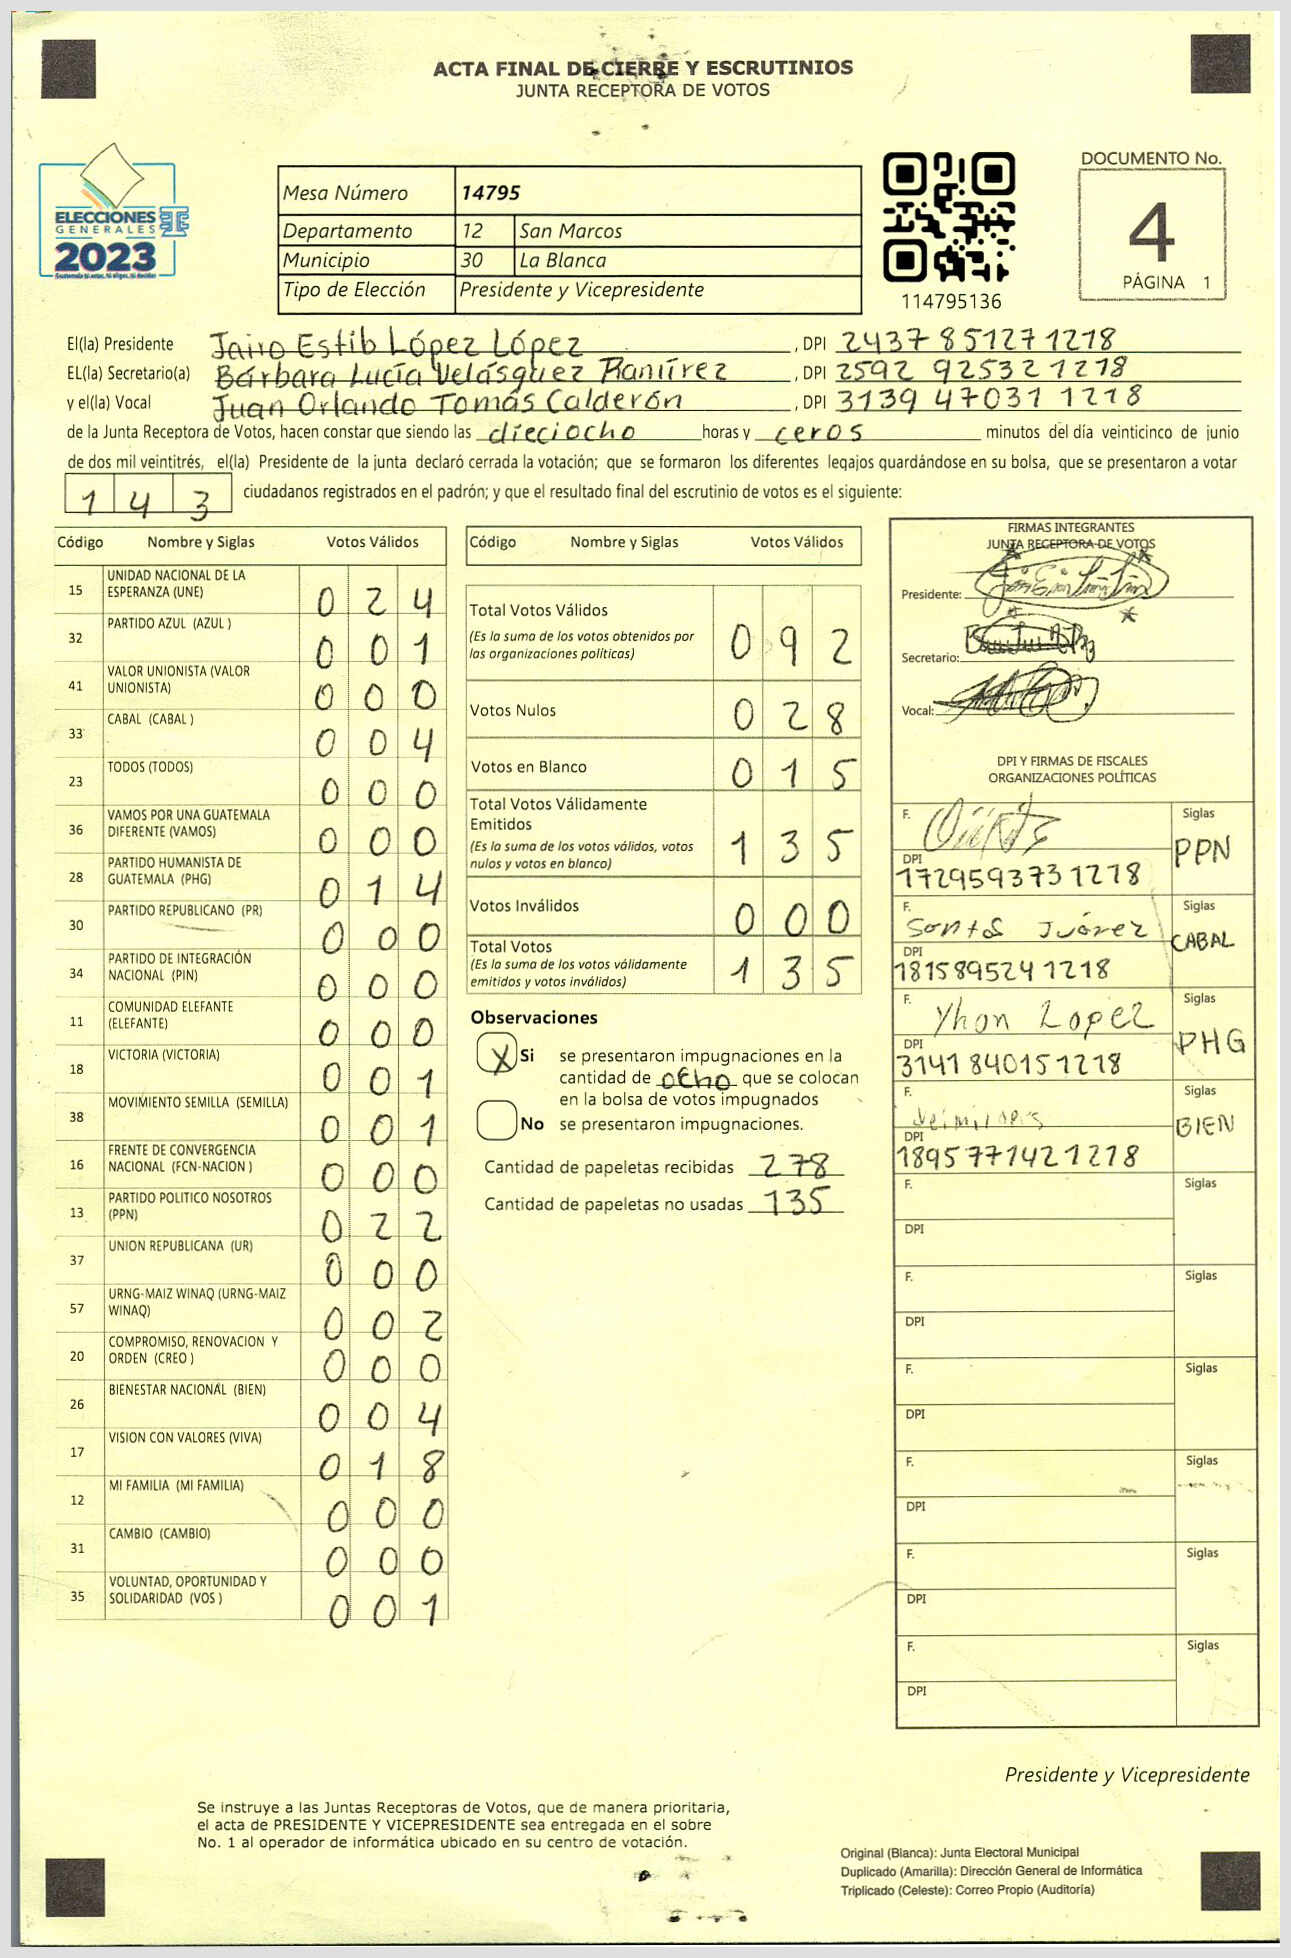 ACTA FINAL DE CIERRE Y ESCRUTINIOS
JUNTA RECEPTORA DE VOTOS
ELECCIONES
GENERALES
2023
Mesa Número 14795
Departamento 12 San Marcos
Municipio 30 La Blanca
Tipo de Elección Presidente y Vicepresidente
114795136
DOCUMENTO No.
4
PÁGINA 1
El(la) Presidente Jairo Estib López López , DPI 2437 85127 1218
EL(la) Secretario(a) Bárbara Lucía Velásquez Ramírez , DPI 2592 92532 1218
y el(la) Vocal Juan Orlando Tomás Calderón , DPI 3139 47031 1218
de la Junta Receptora de Votos, hacen constar que siendo las dieciocho horas y ceros minutos del día veinticinco de junio
de dos mil veintitrés, el(la) Presidente de la junta declaró cerrada la votación; que se formaron los diferentes legajos guardándose en su bolsa, que se presentaron a votar
1 4 3 ciudadanos registrados en el padrón; y que el resultado final del escrutinio de votos es el siguiente:
Código Nombre y Siglas Votos Válidos
15 UNIDAD NACIONAL DE LA ESPERANZA (UNE) 0 2 4
32 PARTIDO AZUL (AZUL ) 0 0 1
41 VALOR UNIONISTA (VALOR UNIONISTA) 0 0 0
33 CABAL (CABAL ) 0 0 4
23 TODOS (TODOS) 0 0 0
36 VAMOS POR UNA GUATEMALA DIFERENTE (VAMOS) 0 0 0
28 PARTIDO HUMANISTA DE GUATEMALA (PHG) 0 1 4
30 PARTIDO REPUBLICANO (PR) 0 0 0
34 PARTIDO DE INTEGRACIÓN NACIONAL (PIN) 0 0 0
11 COMUNIDAD ELEFANTE (ELEFANTE) 0 0 0
18 VICTORIA (VICTORIA) 0 0 1
38 MOVIMIENTO SEMILLA (SEMILLA) 0 0 1
16 FRENTE DE CONVERGENCIA NACIONAL (FCN-NACION ) 0 0 0
13 PARTIDO POLITICO NOSOTROS (PPN) 0 2 2
37 UNION REPUBLICANA (UR) 0 0 0
57 URNG-MAIZ WINAQ (URNG-MAIZ WINAQ) 0 0 2
20 COMPROMISO, RENOVACION Y ORDEN (CREO ) 0 0 0
26 BIENESTAR NACIONAL (BIEN) 0 0 4
17 VISION CON VALORES (VIVA) 0 1 8
12 MI FAMILIA (MI FAMILIA) 0 0 0
31 CAMBIO (CAMBIO) 0 0 0
35 VOLUNTAD, OPORTUNIDAD Y SOLIDARIDAD (VOS ) 0 0 1
Código Nombre y Siglas Votos Válidos
Total Votos Válidos 0 9 2
(Es la suma de los votos obtenidos por
las organizaciones políticas)
Votos Nulos 0 2 8
Votos en Blanco 0 1 5
Total Votos Válidamente
Emitidos 1 3 5
(Es la suma de los votos válidos, votos
nulos y votos en blanco)
Votos Inválidos 0 0 0
Total Votos 1 3 5
(Es la suma de los votos válidamente
emitidos y votos inválidos)
Observaciones
X Si se presentaron impugnaciones en la
cantidad de ocho que se colocan
en la bolsa de votos impugnados
No se presentaron impugnaciones.
Cantidad de papeletas recibidas 278
Cantidad de papeletas no usadas 135
FIRMAS INTEGRANTES
JUNTA RECEPTORA DE VOTOS
Presidente:
Secretario:
Vocal:
DPI Y FIRMAS DE FISCALES
ORGANIZACIONES POLÍTICAS
F. Siglas PPN
DPI 1729593731218
F. Santos Juárez Siglas CABAL
DPI 1815895241218
F. Yhon Lopez Siglas PHG
DPI 3141 840151218
F. Siglas BIEN
DPI 1895771421218
F. Siglas
DPI
F. Siglas
DPI
F. Siglas
DPI
F. Siglas
DPI
F. Siglas
DPI
F. Siglas
DPI
Presidente y Vicepresidente
Se instruye a las Juntas Receptoras de Votos, que de manera prioritaria,
el acta de PRESIDENTE Y VICEPRESIDENTE sea entregada en el sobre
No. 1 al operador de informática ubicado en su centro de votación.
Original (Blanca): Junta Electoral Municipal
Duplicado (Amarilla): Dirección General de Informática
Triplicado (Celeste): Correo Propio (Auditoría)